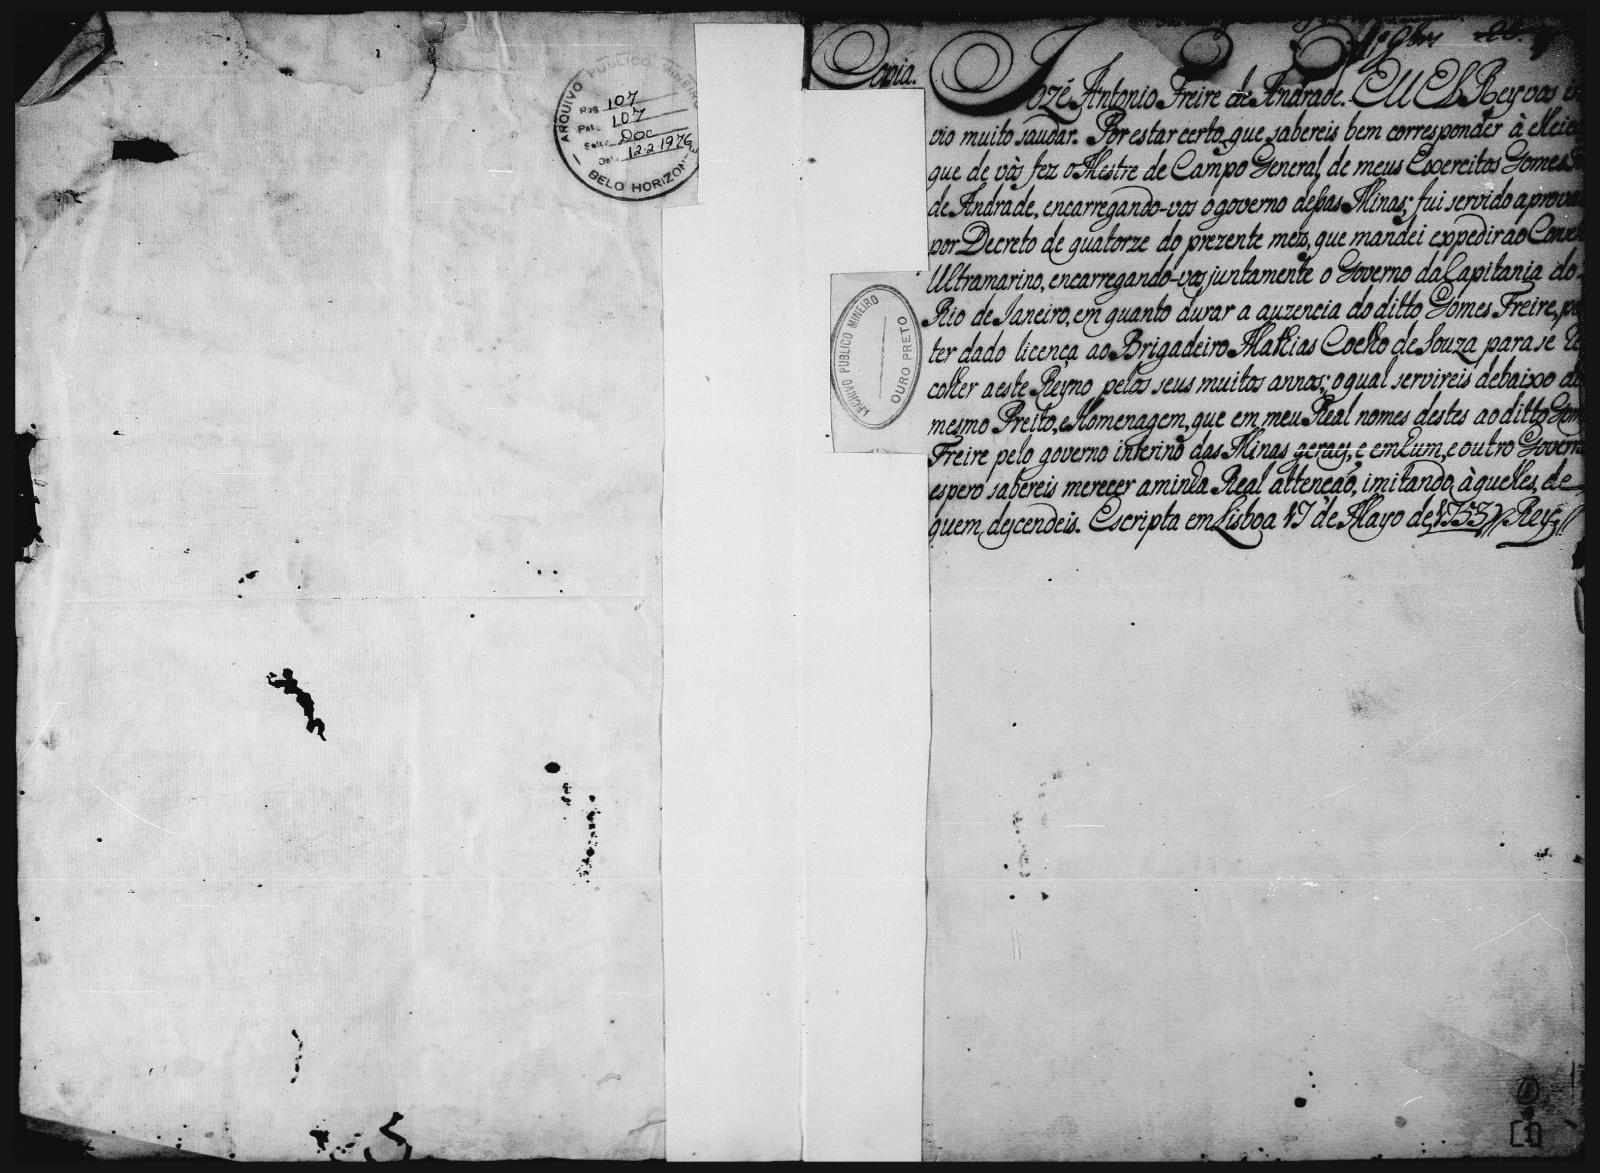 ARQUIVO PUBLICO MINEIRO
Reg. 107
Pat. 107
Doc
Dat. 12-2-1976
BELO HORIZON
Copia.
Jozé Antonio Freire de Andrade. EU ElRey vos en
vio muito saudar. Por estar certo, que sabereis bem corresponder à eleiç
que de vòs fez o Mestre de Campo General, de meus Exercitos Gomes
de Andrade, encarregando-vos o governo dessas Minas; fui servido aprova
por Decreto de quatorze do prezente mez, que mandei expedir ao Conse
Ultramarino, encarregando-vos juntamente o Governo da Capitania do
Rio de Janeiro, em quanto durar a auzencia do ditto Gomes Freire, po
ter dado licença ao Brigadeiro Mathias Coelho de Souza para se re
colher a este Reyno pelos seus muitos annos; o qual servireis debaixo do
mesmo Preito, e Homenagem, que em meu Real nome destes ao ditto Gom
Freire pelo governo interino das Minas geraes, e em hum, e outro Govern
espero sabereis merecer a minha Real attenção, imitando àquelles, de
quem descendeis. Escripta em Lisboa 17 de Mayo de 1753 // Rey //
ARCHIVO PUBLICO MINEIRO
OURO PRETO
[1]